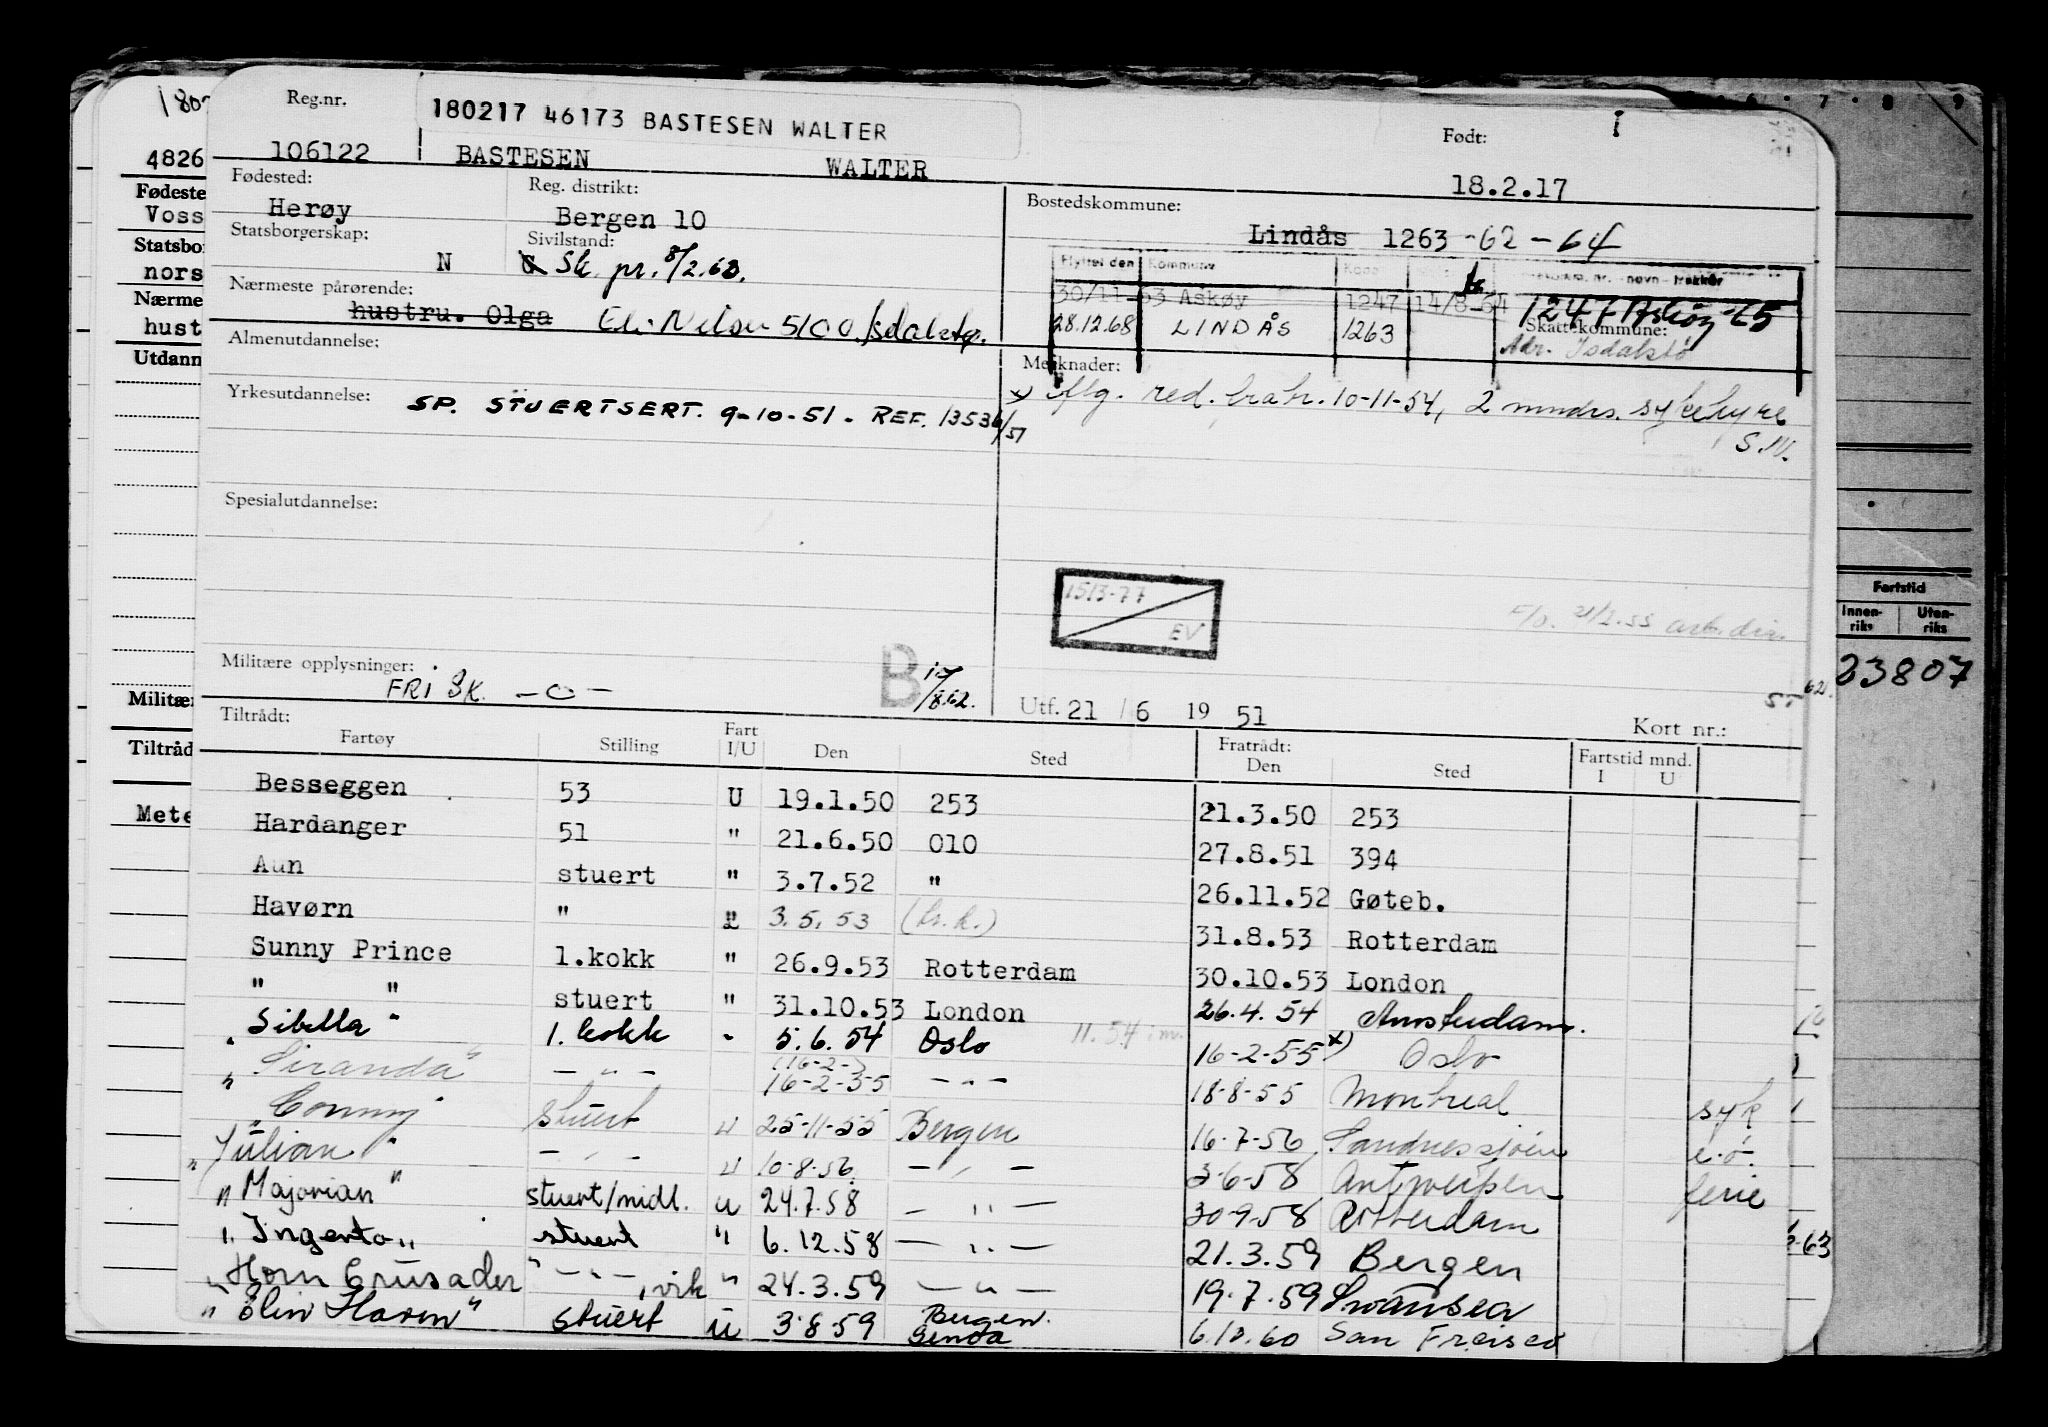 Reg.nr.
180217 46173 BASTESEN WALTER
Født:
I
106122 BASTESEN WALTER 18.2.17
Fødested: Reg. distrikt: Bostedskommune:
Herøy Bergen 10 Lindås 1263 -62-64
Statsborgerskap: Sivilstand:
N Sk. pr. 8/2.68.
Flyttet den Kommune
30/11-63 Askøy 1247 14/8-64
28.12.68 LINDÅS 1263
Skattekommune:
Adr. Isdalstø
Nærmeste pårørende:
hustru. Olga 5100 Isdalstø.
Almenutdannelse:
Merknader:
10-11-54, 2 mndrs. sykehyre
S.M.
Yrkesutdannelse: SP. STUERTSERT. 9-10-51. REF. 13536/51
Spesialutdannelse:
1513-77
EV
F/O. 21/2.55 arb. dir.
Militære opplysninger:
FRI SK. -o-
B 17/8.62.
Utf. 21 / 6 19 51
Kort nr.:
Tiltrådt: Fratrådt:
Fartøy Stilling Fart I/U Den Sted Den Sted Fartstid mnd. I U
Besseggen 53 U 19.1.50 253 21.3.50 253
Hardanger 51 " 21.6.50 010 27.8.51 394
Aun stuert " 3.7.52 " 26.11.52 Gøteb.
Havørn " " 3.5.53 31.8.53 Rotterdam
Sunny Prince 1.kokk " 26.9.53 Rotterdam 30.10.53 London
" " stuert " 31.10.53 London 26.4.54 Amsterdam.
"Sibella" 1. kokk " 5.6.54 Oslo 11.54 16-2-55 x) Oslo
(16-2-)
"Siranda" -"- 16-2-55 -"- 18-8-55 Montreal syk
"Conny" stuert u 25-11-55 Bergen 16-7-56 Sandnessjøen e.ø.
"Julian" -"- u 10-8-56 -"- 3-6-58 Antwerpen ferie
"Majorian" stuert/midl. u 24.7.58 -"- 30-9-58 Rotterdam
"Ingerto" stuert " 6.12.58 -"- 21.3.59 Bergen
"Horn Crusader" -"-, vik " 24.3.59 -"- 19.7.59 Swansea
"Elin Haven" stuert u 3.8.59 Bergen. Genoa 6.12.60 San Fransisco
4826
Fødeste
Voss
Statsbo
nors
Nærme
hust
Utdann
Militær
Tiltråd
Mete
Fartstid
Innen-riks Uten-riks
23807